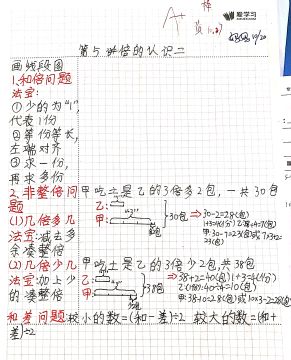 A+ 棒
爱学习
第5讲 倍的认识二
画线段图
1.和倍问题
法宝:
①少的为"1",
代表1份
②等份等长,
左端对齐
③求一份,
再求多份
2.非整倍问题 甲吃土是乙的3倍多2包,一共30包
(1)几倍多几 乙: 甲: 30包 ⇒ 30-2=28(包)
法宝:减去多 1+3=4(份) 乙:28÷4=7(包)
余凑整倍 甲:30-7=23(包)或7×3+2=23(包)
(2)几倍少几 甲吃土是乙的3倍少2包,共38包
法宝:加上少 乙: 甲: 38包 ⇒ 38+2=40(包) 1+3=4(份)
的凑整倍 乙(1份):40÷4=10(包)
甲:38-10=28(包)或10×3-2=28(包)
和差问题 较小的数=(和-差)÷2 较大的数=(和+差)÷2